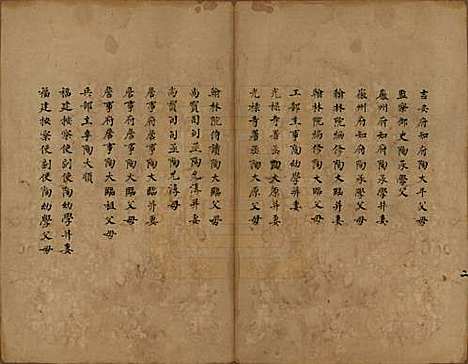 吉安府知府陶大年父母
監察御史陶承學父
廬州府知府陶承學并妻
徽州府知府陶承學父母
翰林院編修陶大臨父母
翰林院編修陶大臨并妻
工部主事陶幼學父母
光祿寺署丞陶大原并妻
光祿寺署丞陶大原父母
翰林院侍讀陶大臨父母
尚寶司司丞陶允淳并妻
尚寶司司丞陶允淳母
詹事府詹事陶大臨并妻
詹事府詹事陶大臨父母
詹事府詹事陶大臨祖父母
兵部主事陶大順
福建按察使副使陶幼學并妻
福建按察使副使陶幼學父母
二